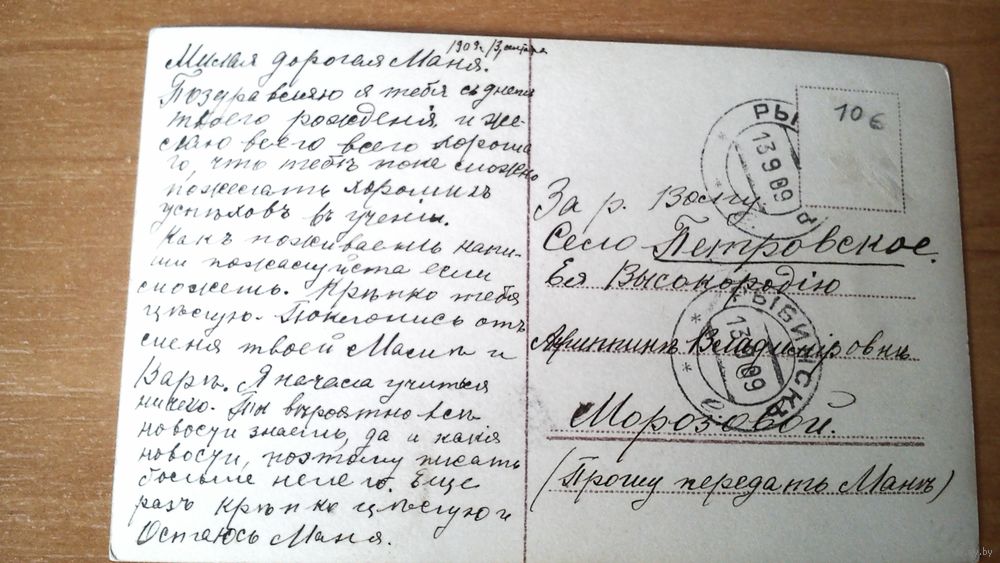 1909г. 13, сентября
Милая дорогая Маня.
Поздравляю я тебя съ днемъ
твоего рожденія и же-
лаю всего всего хороша
го, что тебѣ только можно
пожелать хорошихъ
успѣховъ въ ученіи.
Какъ поживаешь напи-
ши пожалуйста если
можешь. Крѣпко тебя
цѣлую. Поклонись отъ
меня твоей Мамѣ и
Варѣ. Я начала учиться
ничего. Ты вѣроятно всѣ
новости знаешь, да и какія
новости, поэтому писать
больше нечего. Еще
разъ крѣпко цѣлую и
Остаюсь Маня.
106
РЫ
13 9 09
За р. Волгу
Село Петровское.
Ея Высокородію
РЫБИНСКЪ
13 9 09
Агриппинѣ Владиміровнѣ
Морозовой.
(Прошу передать Манѣ)